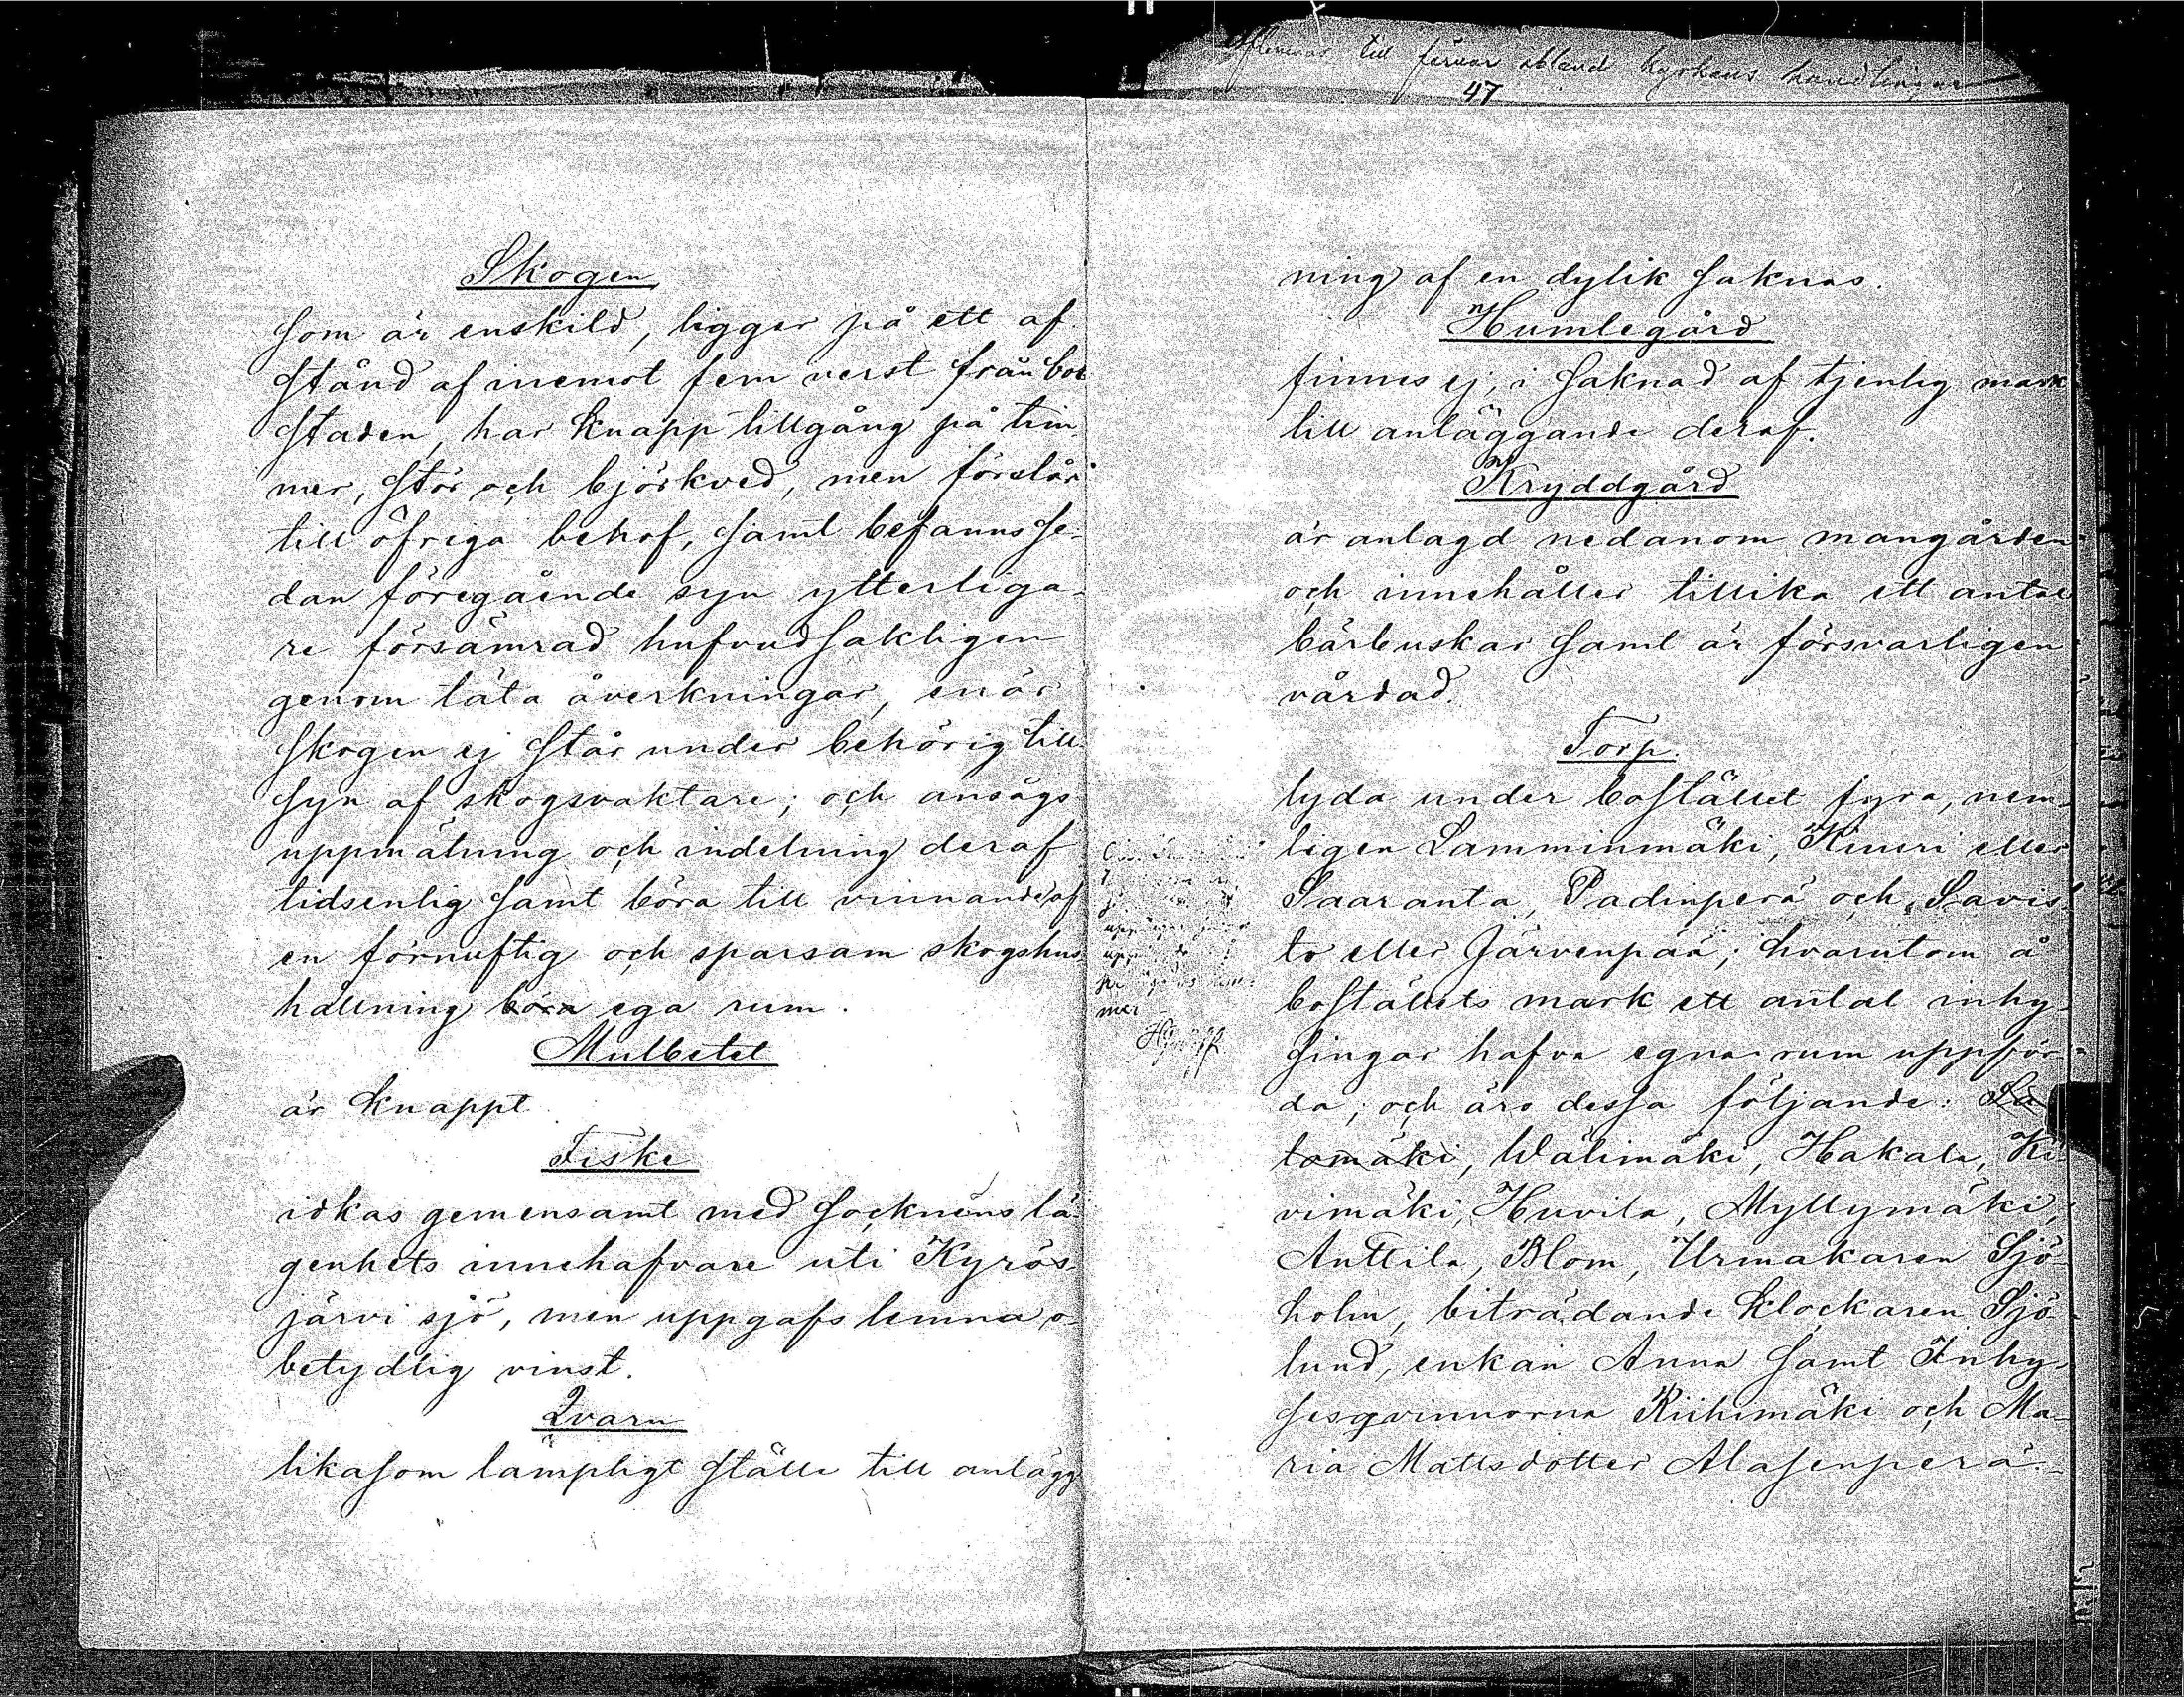 till förvar ibland kyrkans handlingar
47
Skogen
som är enskild, ligger på ett af-
stånd af inemot fem verst från bo-
staden, har knapp tillgång på tim-
mer, stör och björkved, men förslår
till öfriga behof, samt befanns se-
dan föregående syn ytterliga-
re försämrad hufvudsakligen
genom täta åverkningar, enär
skogen ej står under behörig till-
syn af skogsvaktare; och ansågs
uppmätning och indelning deraf
tidsenlig samt böra till vinnande af
en förnuftig och sparsam skogshus-
hållning böra ega rum.
Mulbetet
är knappt
Fiske
idkas gemensamt med socknens lä-
genhets innehafvare uti Kyrös-
järvi sjö, men uppgafs lemna o-
betydlig vinst.
Qvarn
likasom lämpligt ställe till anlägg-
ning af en dylik saknas.
Humlegård
finnes ej, i saknad af tjenlig mark
till anläggande deraf.
Kryddgård
är anlagd nedanom mangården
och innehåller tillika ett antal
bärbuskar samt är försvarligen
vårdad.
Torp.
lyda under bostället fyra, nem-
ligen Lamminmäki, Kiuuri eller
Saaranta, Padinperä och Savis-
to eller Järvenpää; hvarutom å
boställets mark ett antal inhy-
singar hafva egna rum uppför-
da; och äro dessa följande: La
tomäki, Wälimäki, Hakala, Ki-
vimäki, Huvila, Myllymäki,
Anttila, Blom, Urmakaren Sjö-
holm, biträdande klockaren Sjö-
lund, enkan Anna samt Inhy-
sesqvinnorna Riihimäki och Ma-
ria Mattsdotter Alasenperä.